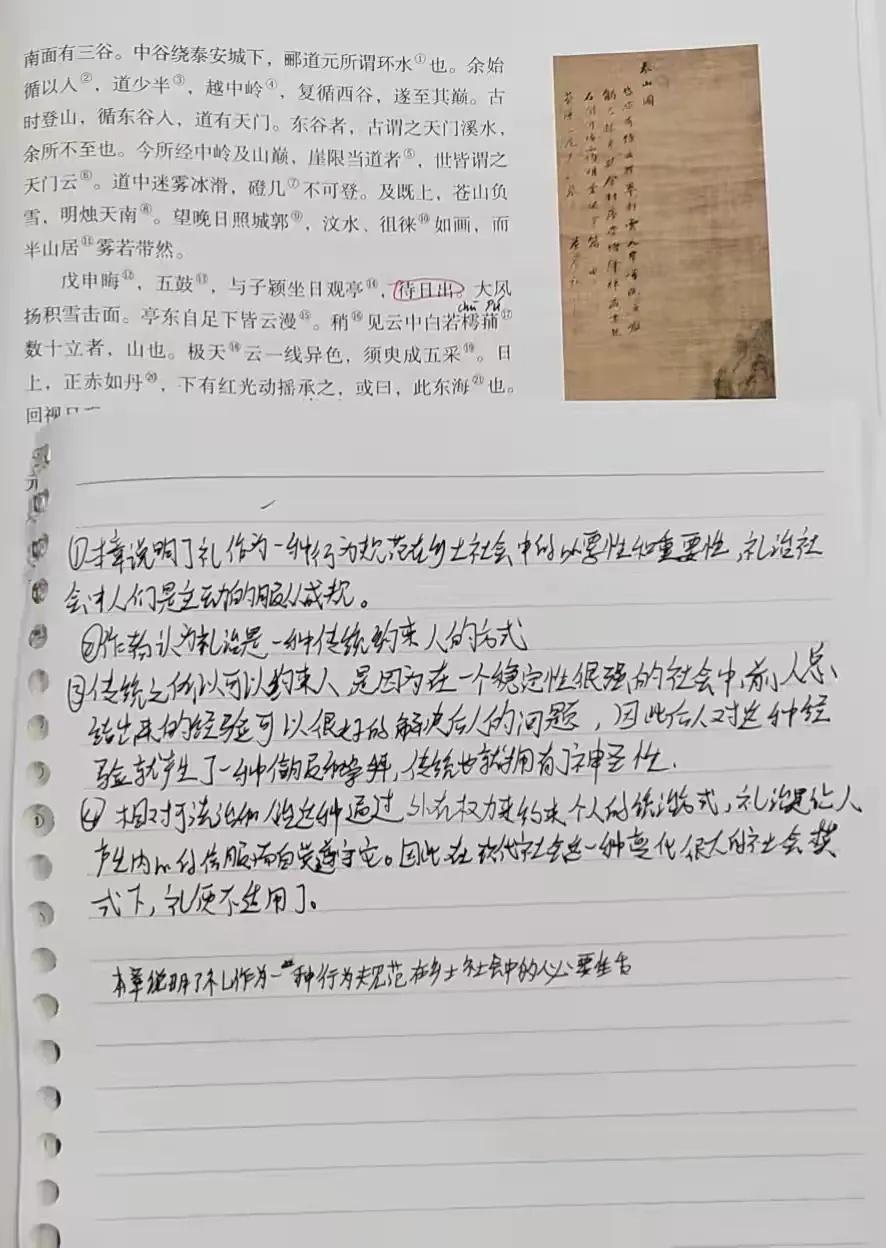 南面有三谷。中谷绕泰安城下，郦道元所谓环水①也。余始
循以入②，道少半③，越中岭④，复循西谷，遂至其巅。古
时登山，循东谷入，道有天门。东谷者，古谓之天门溪水，
余所不至也。今所经中岭及山巅，崖限当道者⑤，世皆谓之
天门云⑥。道中迷雾冰滑，磴几⑦不可登。及既上，苍山负
雪，明烛天南⑧。望晚日照城郭⑨，汶水、徂徕⑩如画，而
半山居⑪雾若带然。
戊申晦⑫，五鼓⑬，与子颖坐日观亭⑭，待日出。大风
chū pú
扬积雪击面。亭东自足下皆云漫⑮。稍⑯见云中白若樗蒱⑰
数十立者，山也。极天⑱云一线异色，须臾成五采⑲。日
上，正赤如丹⑳，下有红光动摇承之，或曰，此东海㉑也。
回视日
泰山图
①本章说明了礼作为一种行为规范在乡土社会中的必要性和重要性，礼治社
会中人们是主动的服从成规。
②作者认为礼治是一种传统约束人的方式
③传统之所以可以约束人 是因为在一个稳定性很强的社会中，前人总
结出来的经验可以很好的解决后人的问题，因此后人对这种经
验就产生了一种信服和崇拜，传统也就拥有了神圣性．
④ 相对于法治和人治这种通过外在权力来约束个人的统治方式，礼治是让人
产生内心的信服而自觉遵守它。因此在现代社会这一种变化很大的社会模
式下，礼便不适用了。
本章说明了礼作为一种行为规范在乡土社会中的必要性